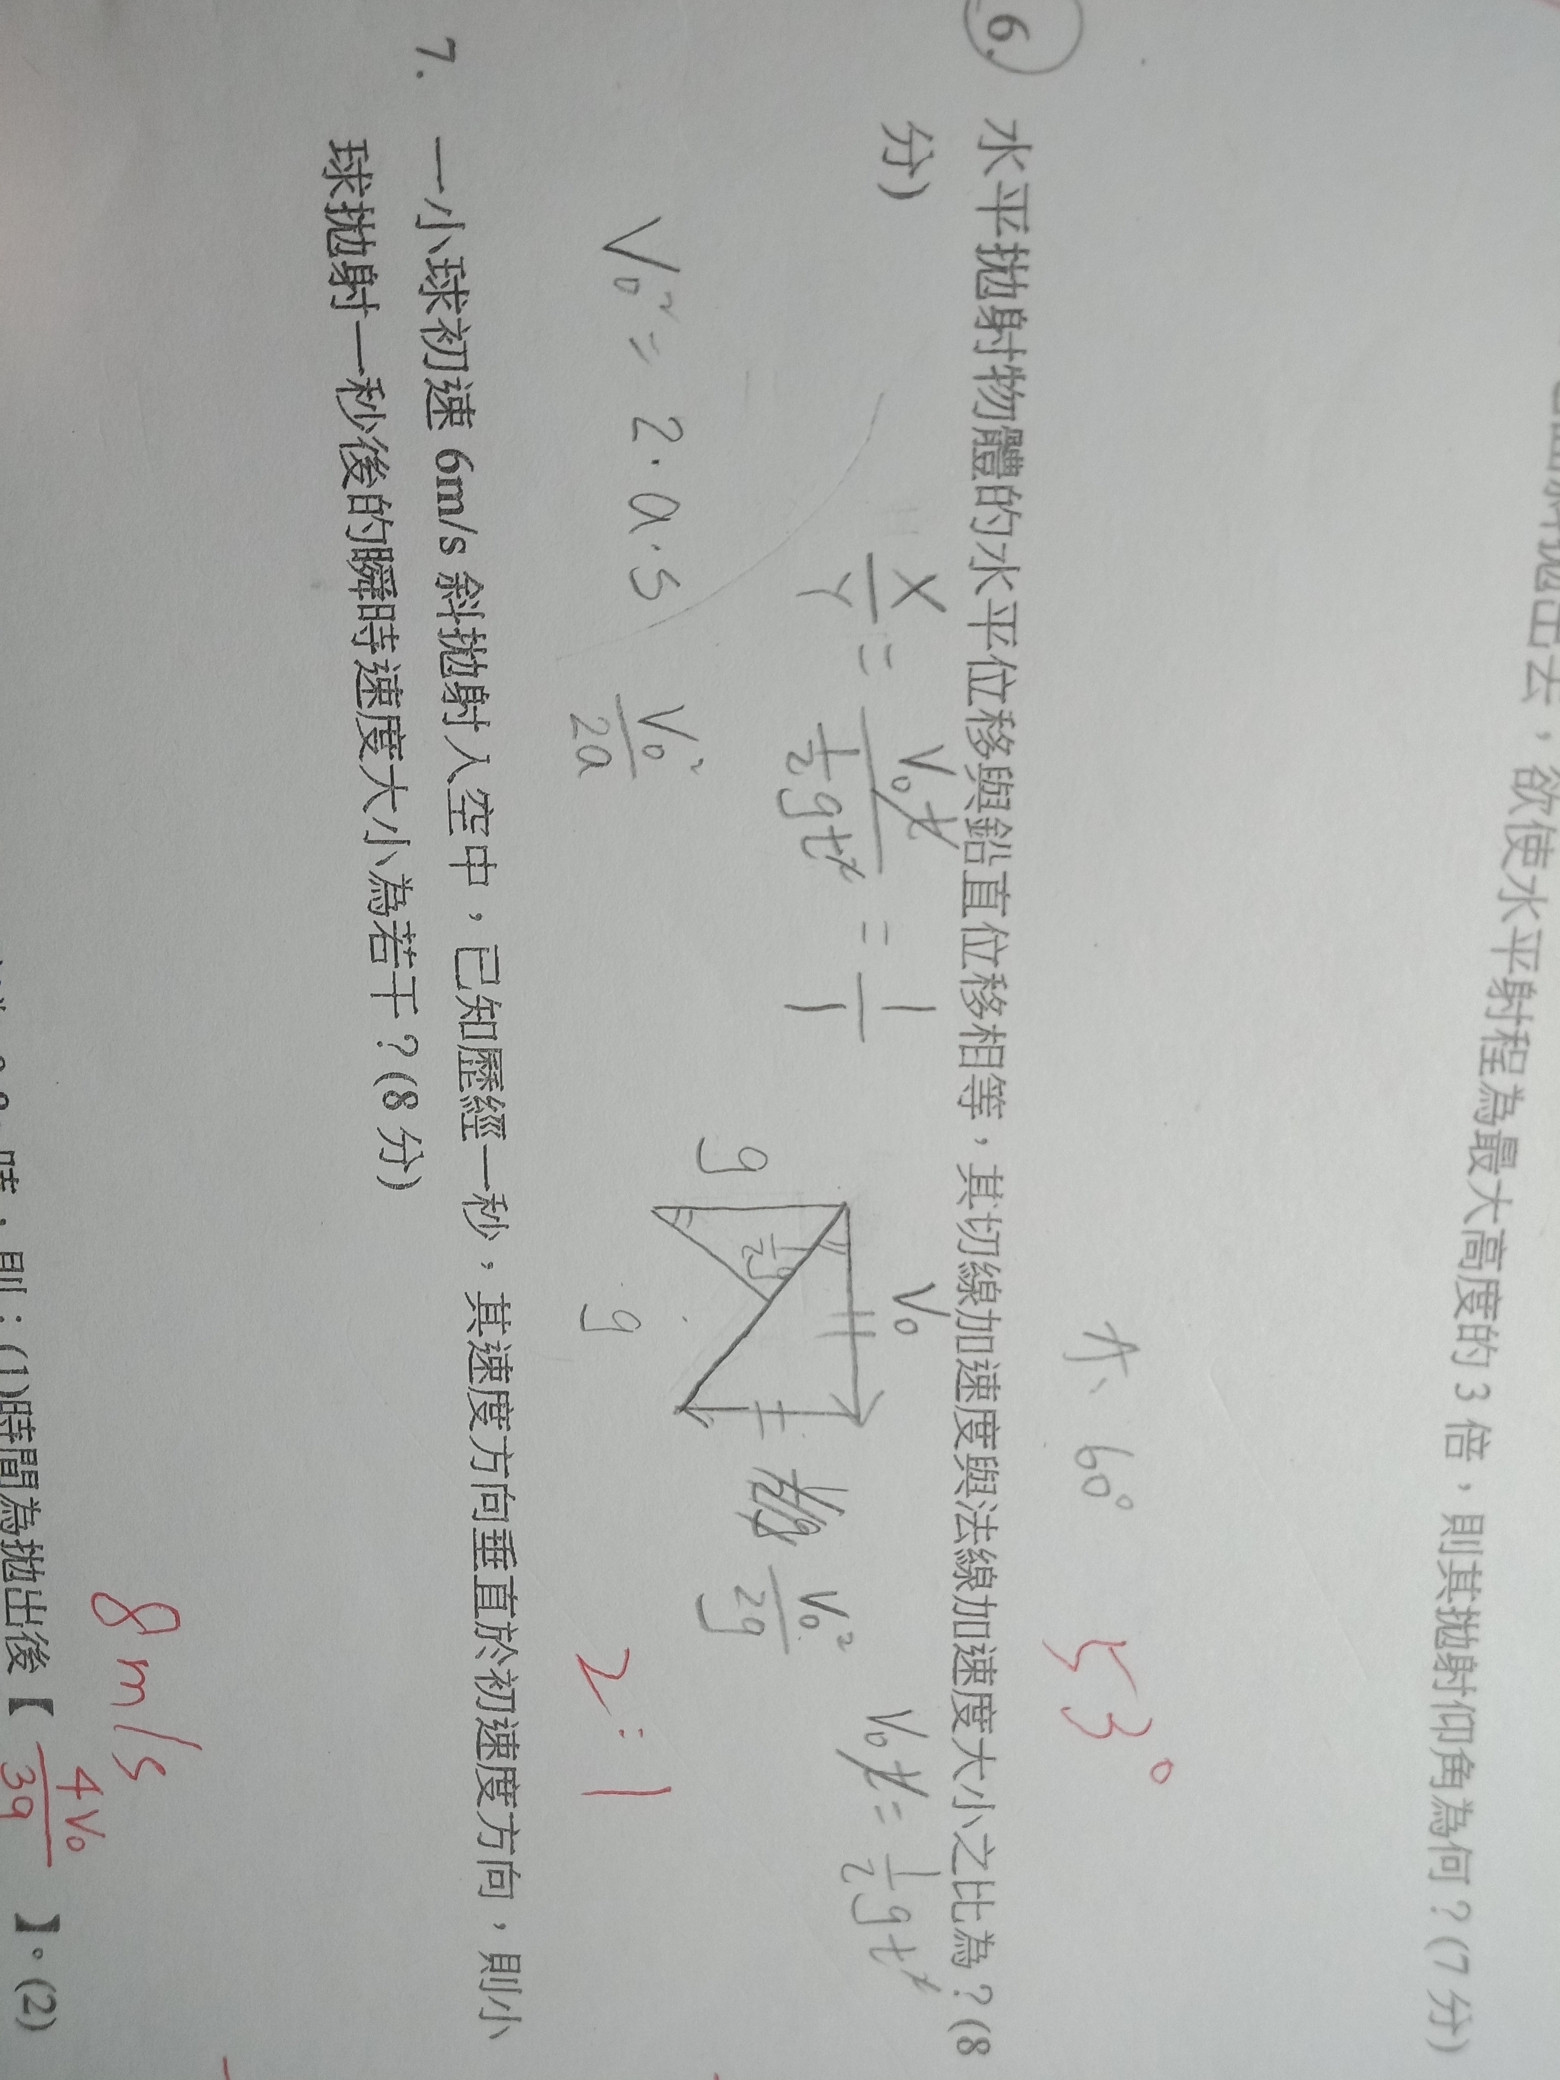 拋出去，欲使水平射程為最大高度的 3 倍，則其拋射仰角為何？(7 分)
A、60°
53°
6. 水平拋射物體的水平位移與鉛直位移相等，其切線加速度與法線加速度大小之比為？(8
分)
X/Y = V₀t / ½gt² = 1/1
V₀t = ½gt²
V₀
g
½g
V₀²/2g
g
V₀² = 2·a·s
V₀²/2a
2:1
7. 一小球初速 6m/s 斜拋射入空中，已知歷經一秒，其速度方向垂直於初速度方向，則小
球拋射一秒後的瞬時速度大小為若干？(8 分)
8 m/s
時，則：(1)時間為拋出後【 4V₀/3g 】。(2)